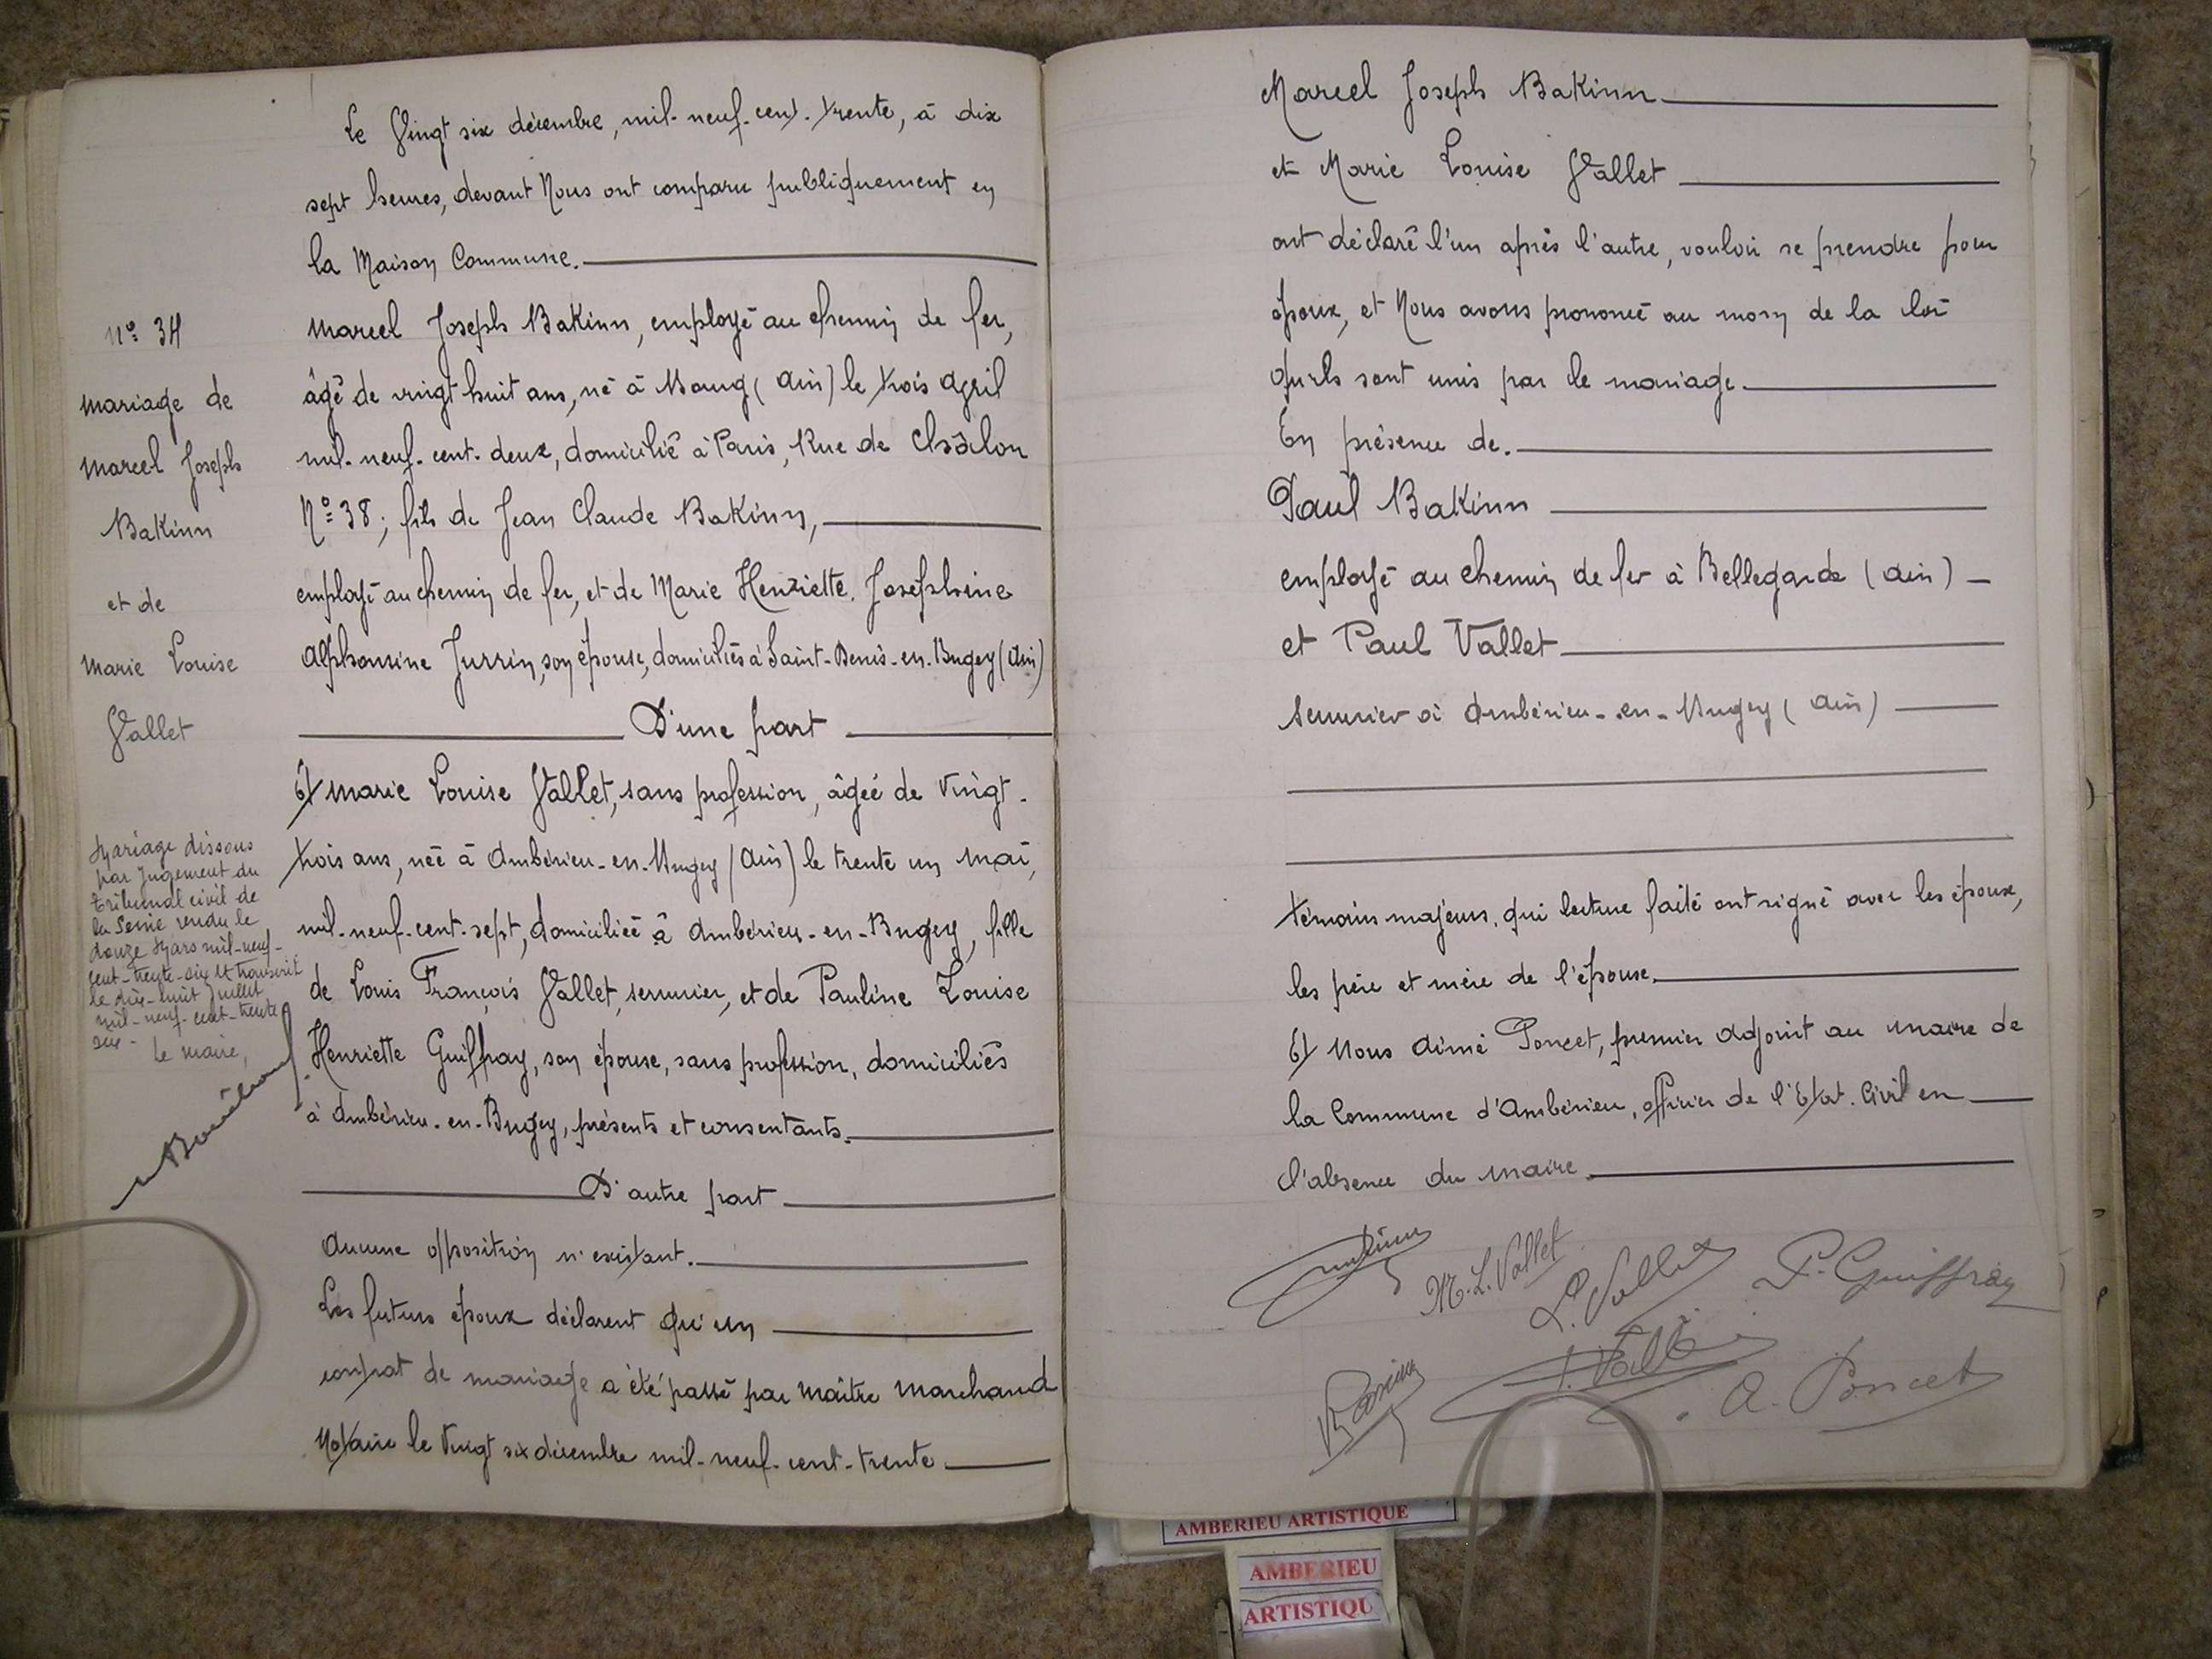 Le Vingt six décembre, mil-neuf-cent-trente, à dix
sept heures, devant Nous ont comparu publiquement en
la Maison Commune.
Marcel Joseph Bakinn, employé au chemin de fer,
âgé de vingt huit ans, né à (Ain) le trois Avril
mil-neuf-cent-deux, domicilié à Paris, Rue de Châlon
N° 38; fils de Jean Claude Bakinn,
employé au chemin de fer, et de Marie Henriette Joséphine
Alphonsine Jurrin, son épouse, domiciliés à Saint-Denis-en-Bugey (Ain)
D'une part
Et Marie Louise Vallet, sans profession, âgée de vingt-
trois ans, née à Ambérieu-en-Bugey (Ain) le trente un Mai,
mil-neuf-cent-sept, domiciliée à Ambérieu-en-Bugey, fille
de Louis François Vallet, serrurier, et de Pauline Louise
Henriette Guiffray, son épouse, sans profession, domiciliés
à Ambérieu-en-Bugey, présents et consentants.
D'autre part
Aucune opposition n'existant.
Les futurs époux déclarent qu'un
contrat de mariage a été passé par Maître Marchand
Notaire le Vingt six décembre mil-neuf-cent-trente
N° 34
Mariage de
Marcel Joseph
Bakinn
et de
Marie Louise
Vallet
Mariage dissous
par Jugement du
tribunal civil de
la Seine rendu le
douze Mars mil-neuf-
cent-trente-six et transcrit
le dix-huit Juillet
mil-neuf-cent-trente
six-
Le maire,
Marcel Joseph Bakinn
et Marie Louise Vallet
ont déclaré l'un après l'autre, vouloir se prendre pour
époux, et Nous avons prononcé au nom de la loi
qu'ils sont unis par le mariage.
En présence de.
Paul Bakinn
employé au chemin de fer à Bellegarde (Ain)
et Paul Vallet
serrurier à Ambérieu-en-Bugey (Ain)
témoins majeurs, qui lecture faite ont signé avec les époux,
les père et mère de l'épouse.
Et Nous Aimé Poncet, premier Adjoint au Maire de
la Commune d'Ambérieu, officier de l'Etat-Civil en
l'absence du Maire.
M. L. Vallet
L. Vallet
P. Guiffray
Bakinn
P. Vallet
A. Poncet
AMBERIEU ARTISTIQUE
AMBERIEU
ARTISTIQU